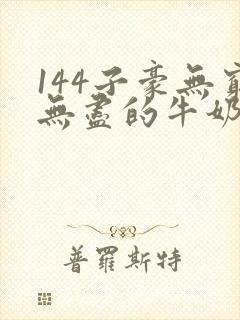 144子豪無窮
無盡的牛奶
普羅斯特